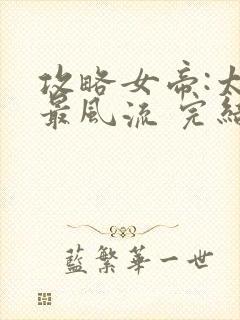 攻略女帝:太
最風流 完結
藍繁華一世